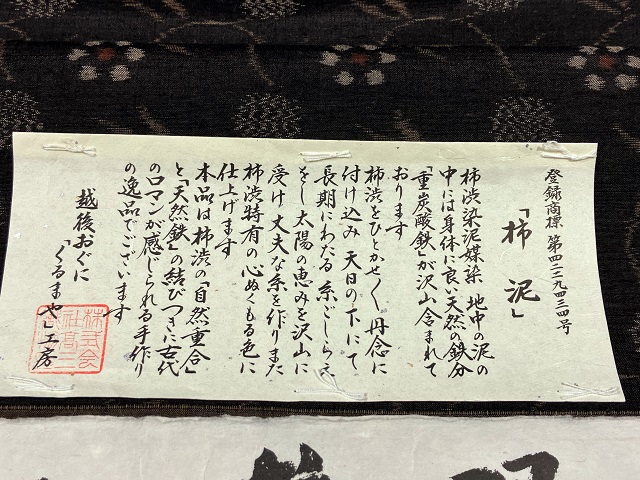 登録商標 第四二二九四三四号
「柿 泥」
柿渋染泥媒染 地中の泥の
中には身体に良い天然の鉄分
「重炭酸鉄」が沢山含まれて
おります
柿渋をひとかせく丹念に
付け込み 天日の下にて
長期にわたる 糸ごしらえ
をし 太陽の恵みを沢山に
受け 丈夫な糸を作りまた
柿渋特有の心ぬくもる色に
仕上げます
本品は柿渋の「自然重合」
と「天然鉄」の結びつきに古代
のロマンが感じられる手作り
の逸品でございます
越後おぐに
「くるまや」工房
株式会